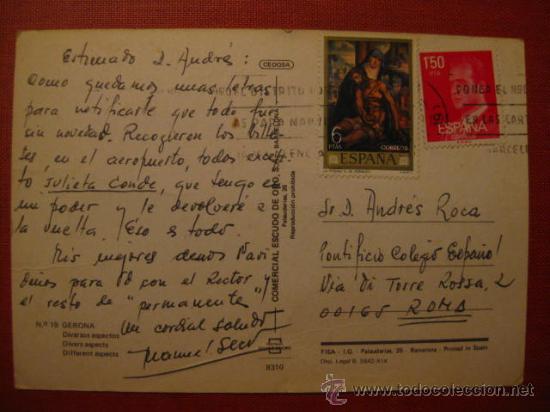 Estimado D. Andrés:
Como quedamos unas letras
para notificarte que todo fue
sin novedad. Recogieron los bille-
tes, en el aeropuerto, todos excep-
to Julieta Conde, que tengo en
mi poder y le devolveré a
la vuelta. Eso es todo.
Mis mejores deseos Navi
deños para Vd con el Rector y
el resto de "permanente"
Un cordial saludo
Manuel
Nº 19 GERONA
Diversos aspectos
Divers aspects
Different aspects
CEDOSA
COMERCIAL ESCUDO DE ORO, S.A.
Palaudarias, 26
Reproducción prohibida
8310
6
PTAS
CORREOS
ESPAÑA
1'50
PTA
ESPAÑA
CORREOS
PONGA EL
EN LAS CART
Sr. D. Andrés Roca
Pontificio Colegio Español
Via di Torre Rossa, 2
00165 ROMA
FISA - I.G. - Palaudarias, 26 - Barcelona - Printed in Spain
Dep. Legal B. 5942-XIX
todocoleccion.net